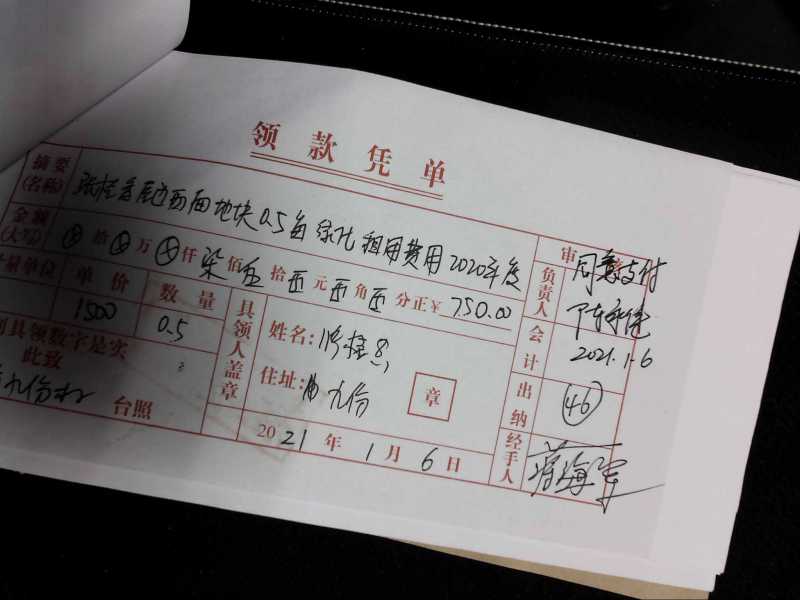 领款凭单
摘要(名称) 张桂 西面地块0.5亩 绿化 租用费用2020年度
金额(大写) 拾 万 仟 柒 佰 伍 拾 元 角 分正¥ 750.00
量单位 单价 数量
1500 0.5
到具领数字是实
此致
九份 台照
具领人盖章
姓名: 桂
住址: 九份
章
2021年1月6日
审
负责人 同意支付
2021.1.6
会计
出纳 46
经手人 蒋海军